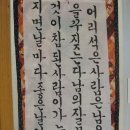 어리석은사람은남
는다남의
것이참된사람이가
지면날마다좋은